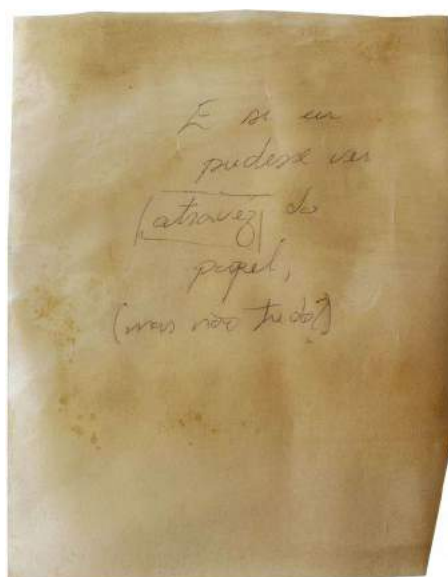 E se eu
pudesse ver
atravez do
papel,
(mas não tudo?)